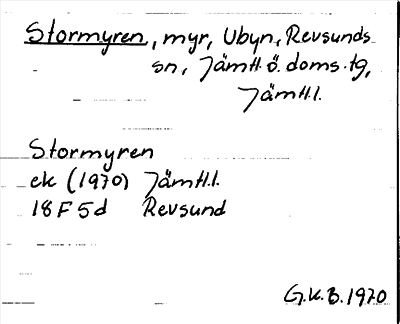 Stormyren, myr, Ubyn, Revsunds
sn, Jämtl. ö. doms. tg,
Jämtl.l.
Stormyren
ek (1970) Jämtl.l.
18 F 5d Revsund
G.K.B. 1970